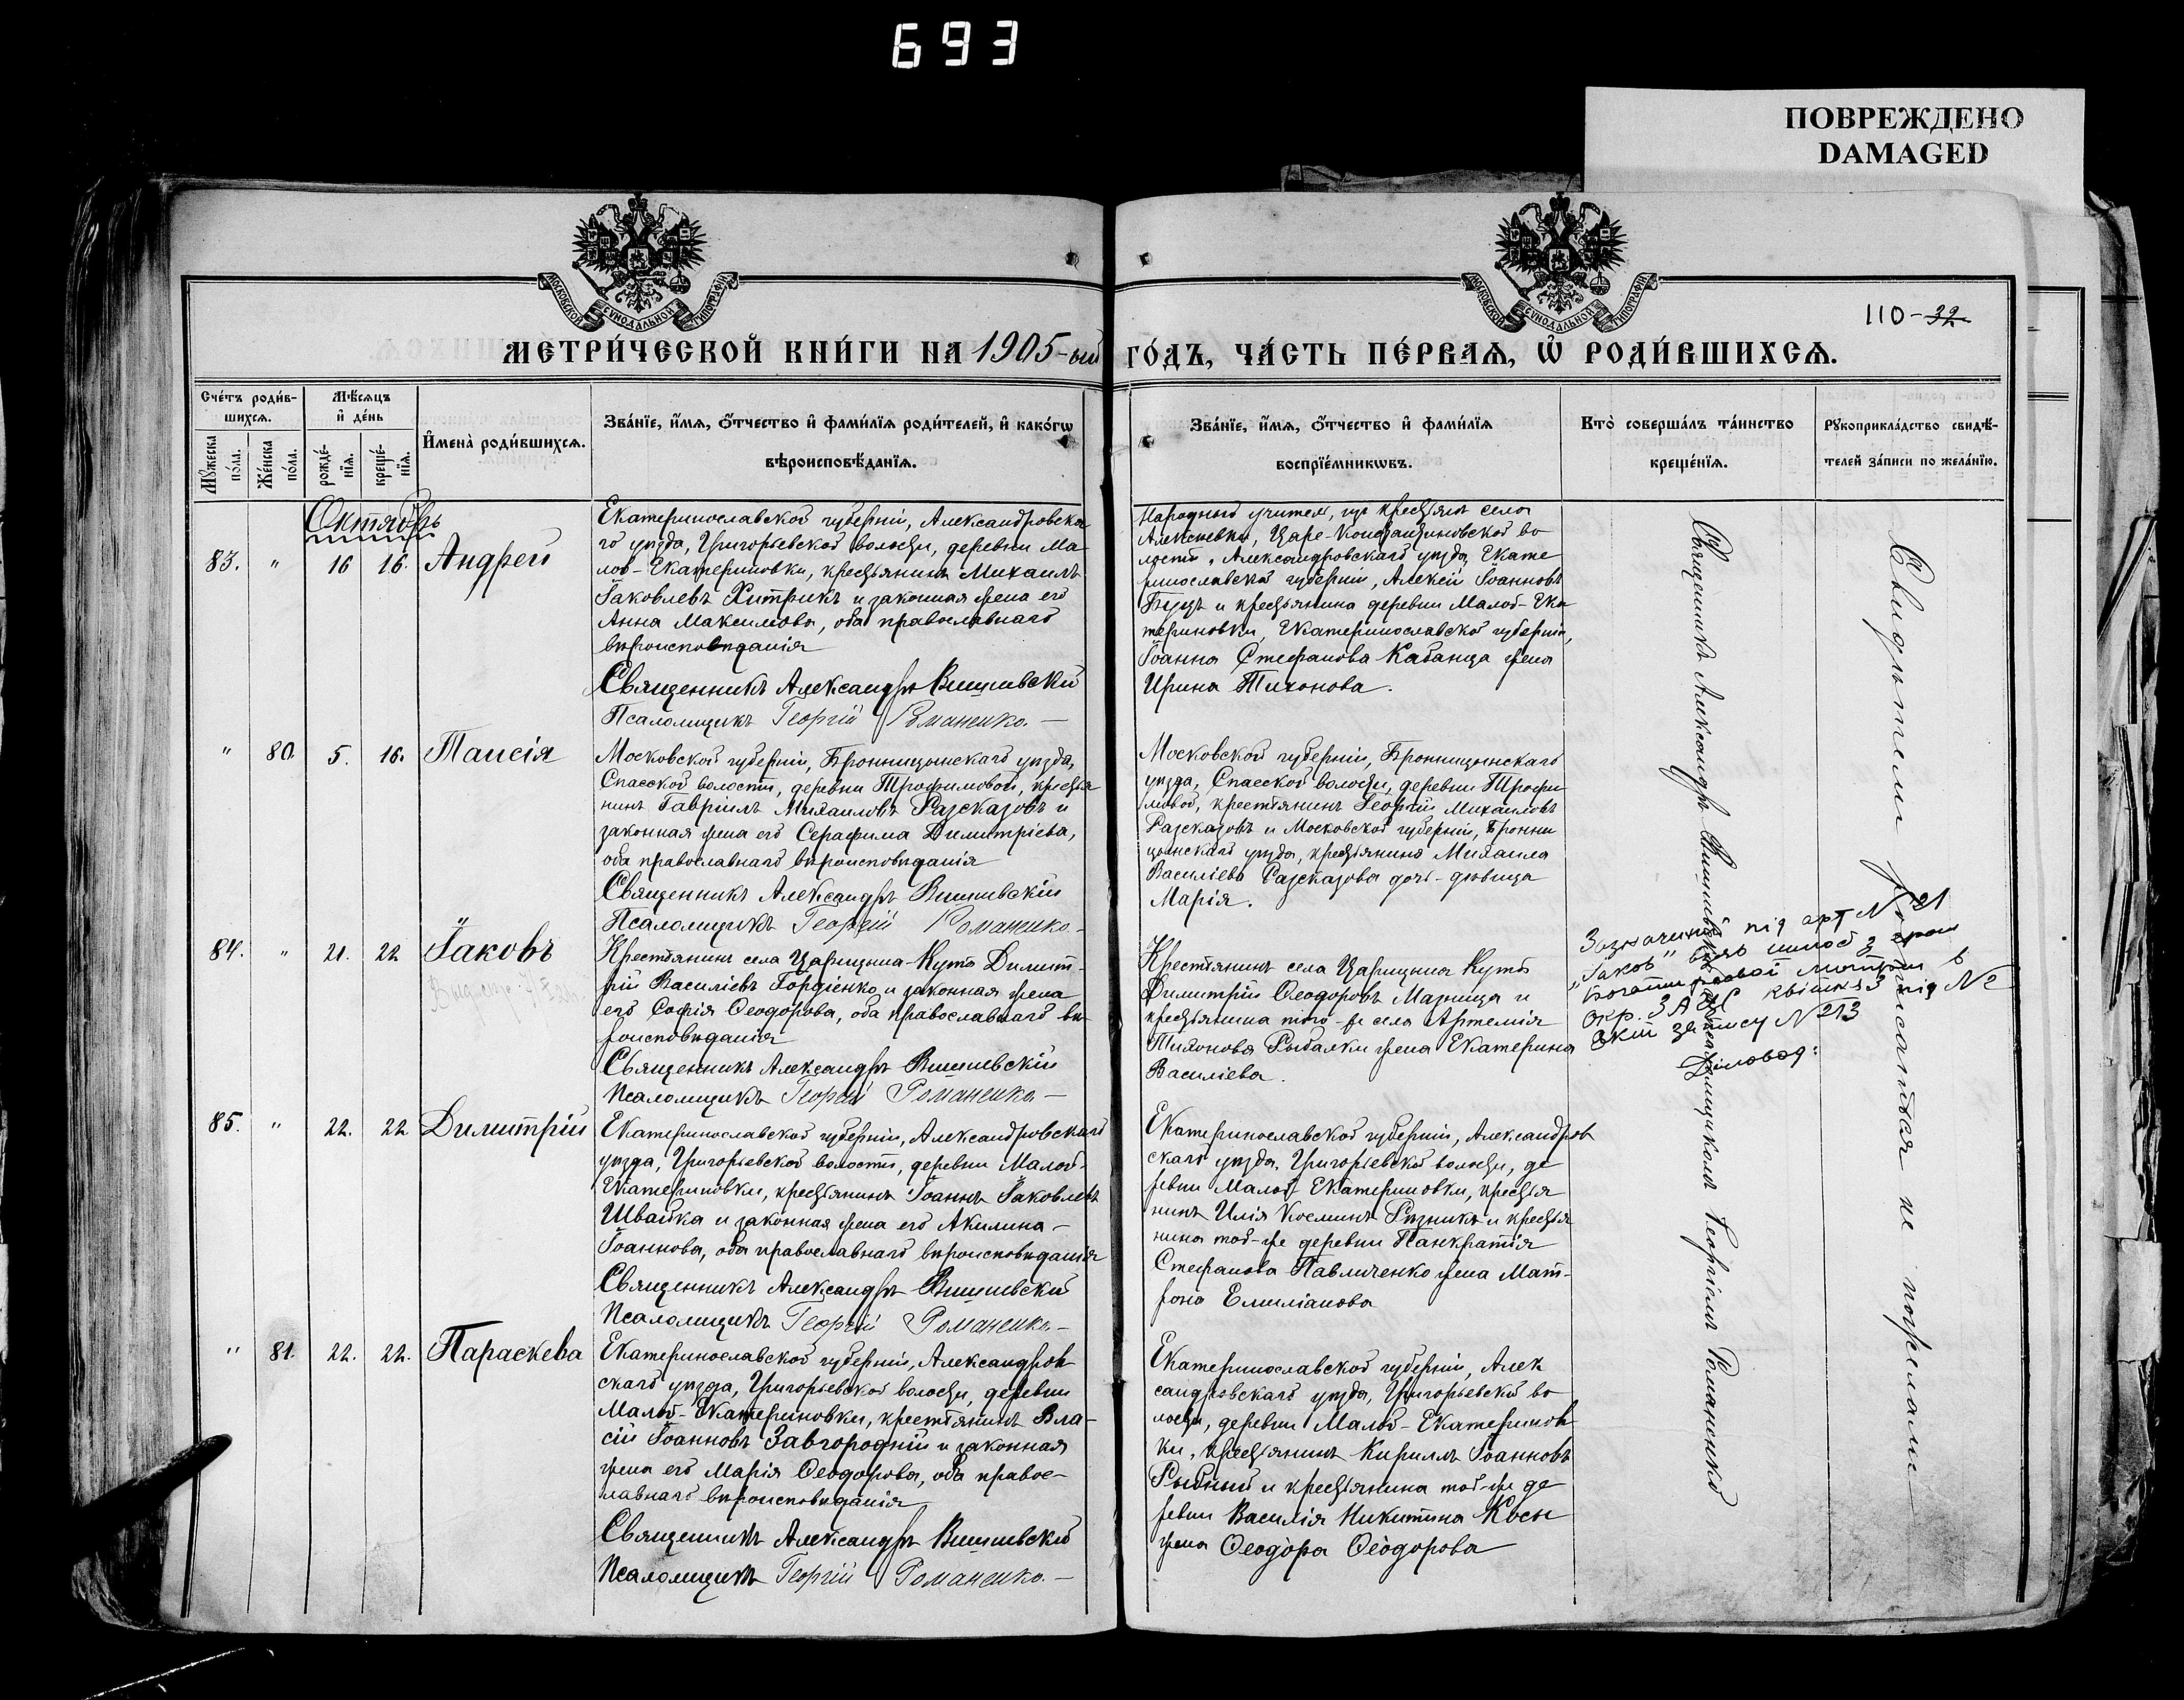 693
ПОВРЕЖДЕНО
DAMAGED
МОСКОВСКОЙ СѴНОДАЛЬНОЙ ТИПОГРАФІИ
МОСКОВСКОЙ СѴНОДАЛЬНОЙ ТИПОГРАФІИ
110-32
МЕТРИ́ЧЕСКОЙ КНИ́ГИ НА 1905-ый ГО́ДЪ, ЧА́СТЬ ПЕ́РВАѦ, Ѡ҆ РОДИ́ВШИХСѦ.
Сче́тъ роди́в-
шихсѧ.
Мѣ́сѧцъ
и҆ де́нь
Мꙋ́жеска
по́ла.
Же́нска
по́ла.
рожде́-
нїѧ.
креще́-
нїѧ.
И҆мена̀ роди́вшихсѧ.
Зва́нїе, и҆́мѧ, ѻ҆́тчество и҆ фами́лїѧ роди́телей, и҆ како́гѡ
вѣроисповѣ́данїѧ.
Зва́нїе, и҆́мѧ, ѻ҆́тчество и҆ фами́лїѧ
воспрїе́мникѡвъ.
Кто̀ соверша́лъ та́инство
креще́нїѧ.
Рꙋкоприкла́дство свидѣ́-
телей за́писи по жела́нїю.
Октябрь
83. " 16 16. Андрей
Екатеринославской губерніи, Александровска-
го уѣзда, Григорьевской волости, деревни Ма-
лой-Екатериновки, крестьянинъ Михаилъ
Іаковлевъ Хитрикъ и законная жена его
Анна Максимова, оба православнаго
вѣроисповѣданія
Священникъ Александръ Вишневскій
Псаломщикъ Георгій Романенко.—
Народный учитель, изъ крестьянъ села
Алексѣевки, Царе-Константиновской во
лости, Александровскаго уѣзда, Екате
ринославской губерніи, Алексій Іоанновъ
и крестьянина деревни Малой-Ека
териновки, Екатеринославской губерніи,
Іоанна Стефанова Кабанца жена
Ирина Тихонова.
" 80. 5. 16. Таисія
Московской губерніи, Бронницынскаго уѣзда,
Спасской волости, деревни Трофимовой, крестья
нинъ Гавріилъ Михаиловъ Разсказовъ и
законная жена его Серафима Димитріева,
оба православнаго вѣроисповѣданія
Священникъ Александръ Вишневскій
Псаломщикъ Георгій Романенко.-
Московской губерніи, Бронницынскаго
уѣзда, Спасской волости, деревни Трофи
мовой, крестьянинъ Георгій Михаиловъ
Разсказовъ и Московской губерніи, Бронни
цынскаго уѣзда, крестьянина Михаила
Василіева Разсказова дочь-дѣвица
Марія.
84. " 21. 22 Іаковъ
Крестьянинъ села Царицына-Кута Димит-
рій Василіевъ Гордіенко и законная жена
его Софія Ѳеодорова, оба православнаго вѣ-
роисповѣданія
Священникъ Александръ Вишневскій
Псаломщикъ Георгій Романенко—
Крестьянинъ села Царицына Кута
Димитрій Ѳеодоровъ Мазница и
крестьянина того-же села Артемія
Тихонова Рыбалки жена Екатерина
Василіева.
Зазначений під арт N 21
"Іаков" взяв шлюб з гром
окр. ЗАГС під №
Акт запису N 213
Діловод:
85. " 22. 22 Димитрій
Екатеринославской губерніи, Александровскаго
уѣзда, Григорьевской волости, деревни Малой-
Екатериновки, крестьянинъ Іоаннъ Іаковлевъ
Швайка и законная жена его Акилина-
Іоаннова, оба православнаго вѣроисповѣданія
Священникъ Александръ Вишневскій
Псаломщикъ Георгій Романенко.—
Екатеринославской губерніи, Александров
скаго уѣзда, Григорьевской волости, де
ревни Малой Екатериновки, крестья
нинъ Илія Косминъ Рѣзникъ и крестья
нина той-же деревни Панкратія
Стефанова Павличенко жена Мат-
рона Емиліанова
" 81. 22. 22. Параскева
Екатеринославской губерніи, Александров
скаго уѣзда, Григорьевской волости, деревни
Малой-Екатериновки, крестьянинъ Вла-
сій Іоанновъ Завгородній и законная
жена его Марія Ѳеодорова, оба правос-
лавнаго вѣроисповѣданія
Священникъ Александръ Вишневскій
Псаломщикъ Георгій Романенко.—
Екатеринославской губерніи, Алек
сандровскаго уѣзда, Григорьевской во
лости, деревни Малой-Екатеринов
ки, крестьянинъ Кириллъ Іоанновъ
и крестьянина той-же де
ревни Василія Никитина Косы
жена Ѳеодора Ѳеодорова
Священникъ Александръ Вишневскій съ псаломщикомъ Георгіемъ Романенко
Свидѣтели росписаться не пожелали—